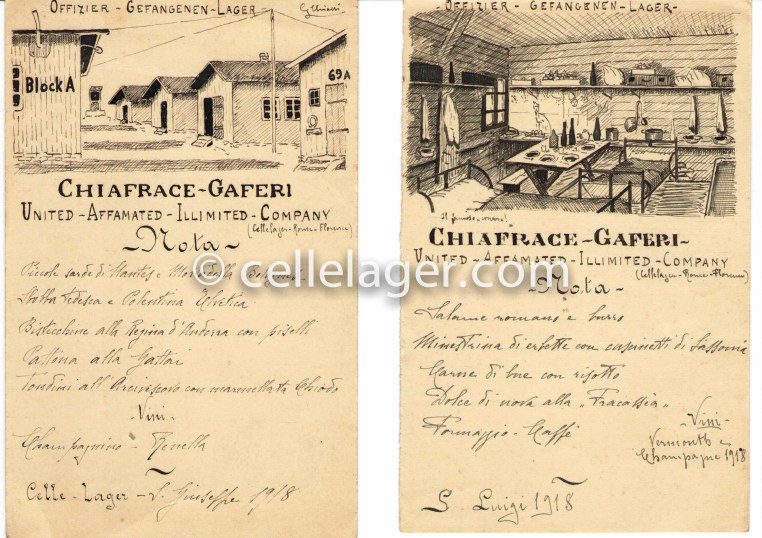 OFFIZIER - GEFANGENEN - LAGER -
Block A
69A
CHIAFRACE - GAFERI
UNITED - AFFAMATED - ILLIMITED - COMPANY
(Cellelager - Rome - Florence)
- Nota -
Piccole sarde di Nantes e Mortadella Bolognese
Tedesca e Polentina Elvetica
Bisticchine alla Regina d'Andorra con piselli
Pattona alla
Tondini all' Arcivescovo con marmellata Chiodo
- Vini -
Champagnino -
Celle - Lager - S. Giuseppe 1918
- OFFIZIER - GEFANGENEN - LAGER -
CHIAFRACE - GAFERI -
UNITED - AFFAMATED - ILLIMITED - COMPANY
(Cellelager - Rome - Florence)
- Nota -
Salame romano e burro
Minestrina di erbette con di Sassonia
Carne di bue con risotto
Dolce di nova alla "Fracassia"
Formaggio - Caffè
- Vini -
Vermouth e
Champagne 1918
S. Luigi 1918
© cellelager.com